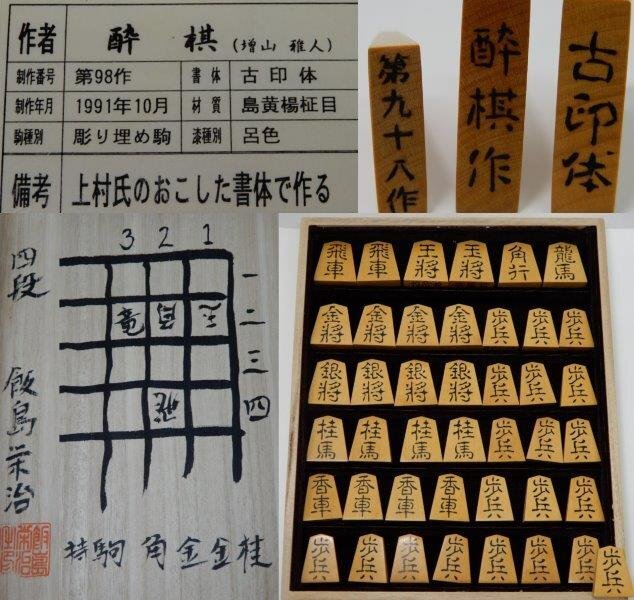 作者 酔棋 (増山 雅人)
制作番号 第98作 書体 古印体
制作年月 1991年10月 材質 島黄楊柾目
駒種別 彫り埋め駒 漆種別 呂色
備考 上村氏のおこした書体で作る
第九十八作
酔棋作
古印体
四段 飯島栄治
3 2 1
一
二
三
四
持駒 角金金桂
飛車 飛車 王将 玉将 角行 龍馬
金将 金将 金将 金将 歩兵 歩兵 歩兵
銀将 銀将 銀将 銀将 歩兵 歩兵 歩兵
桂馬 桂馬 桂馬 桂馬 歩兵 歩兵 歩兵
香車 香車 香車 香車 歩兵 歩兵 歩兵
歩兵 歩兵 歩兵 歩兵 歩兵 歩兵 歩兵 歩兵